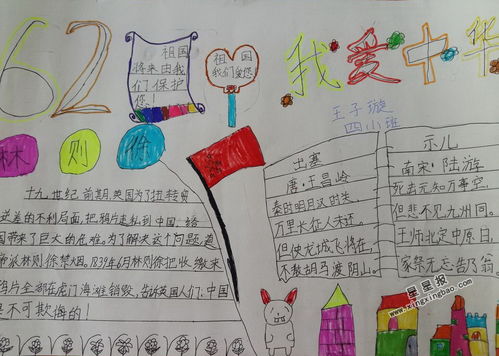 62
祖国
将来由我
们保护
您!
祖国
我们爱您
我爱中华
王子璇
四小班
林则徐
十九世纪前期,英国为了扭转贸
逆差的不利局面,把鸦片走私到中国,给
国带来了巨大的危难。为了解决这个问题,道
帝派林则徐禁烟。1839年6月林则徐把收缴来
鸦片全部在虎门海滩销毁,告诉英国人们:中国
是不可欺侮的!
出塞
唐·王昌岭
秦时明月汉时关,
万里长征人未还。
但使龙城飞将在,
不教胡马渡阴山。
示儿
南宋·陆游
死去元知万事空,
但悲不见九州同。
王师北定中原日,
家祭无忘告乃翁
星星报
www.xingxingbao.com